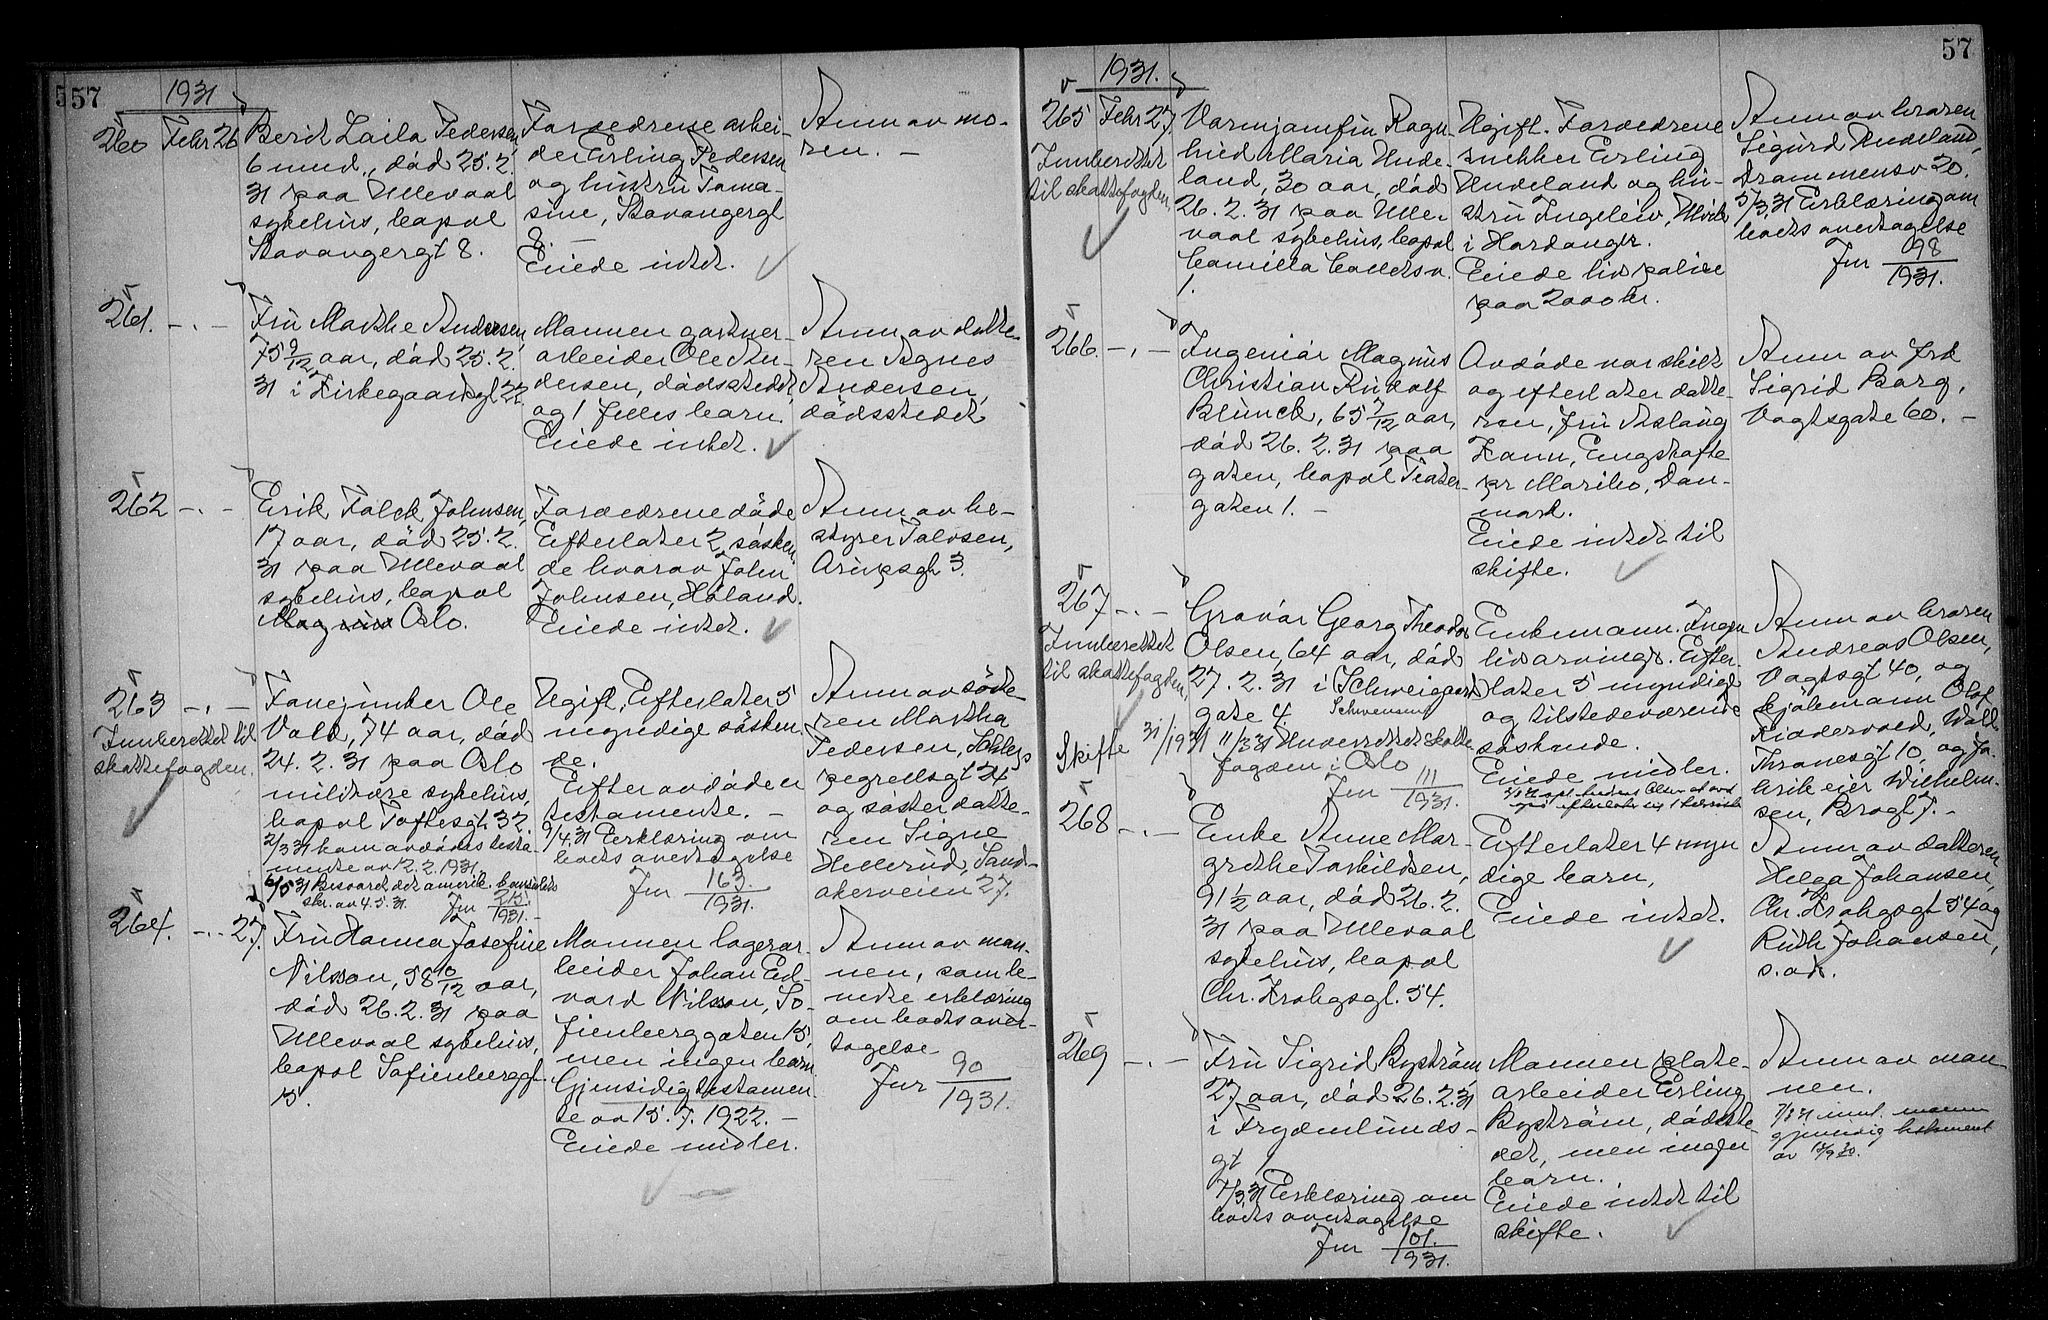 557
1931
260 Febr 26
Berit Laila Pedersen,
6 mnd., död 25.2.
31 paa Ullevaal
sykehus, bopæl
Stavangergt 8.
Forældrene arbei-
der Erling Pedersen
og hustru Toma-
sine, Stavangergt
8. —
Eiede intet.
Anm av mo-
ren. —
261. -"-
Fru Marthe Andersen,
75 9/12 aar, död 25.2.
31 i Kirkegaardsgt 22
Mannen gartner-
arbeider Ole An-
dersen, dödsstedet
og 1 felles barn.
Eiede intet.
Anm av datte-
ren Agnes
Andersen,
dödsstedet
262 -"-
Erik Falck Johnsen,
17 aar, död 25.2.
31 paa Ullevaal
sykehus, bopæl
Oslo.
Forældrene döde
Efterlater 2 sösken
de hvorav John
Johnsen, Höland.
Eiede intet.
Anm av be-
styrer Tolvsen,
Arupsgt 3.
263 -"-
Innberettet til
skattefogden.
Fanejunker Ole
Vold, 74 aar, död
24.2.31 paa Oslo
militære sykehus,
bopæl Toftesgt. 32
2/3 31 kom avdödes testa-
mente av 12.2.1931.
6/5 31 Besvaret det amerik. konsulats
skr. av 4.5.31. Jnr 215/1931. -
Ugift, Efterlater 5
myndige sösken
de.
Efter avdöden
testamente. -
9/4.31 Erklæring om
boets overtagelse
Jnr 163/1931.
Anm av söste
ren Martha
Pedersen, Schleps
pegrellsgt 24,
og söster datte-
ren Signe
Hellerud, Sand-
akerveien 27.
264. -"- 27.
Fru Hanna Josefine
Nilsson, 58 10/12 aar,
död 26.2.31 paa
Ullevaal sykehus,
bopæl Sofienberggt.
15.
Mannen lagerar-
beider Johan Ed-
vard Nilsson, So-
fienberggaten 15,
men ingen barn
Gjensidig testamen
te av 15.7.1922. -
Eiede midler.
Anm av man-
nen, som le-
verte erklæring
om boets over-
tagelse
Jnr 90/1931.
57
1931.
265 Febr 27.
Innberettet
til skattefogden,
Ragn-
hild Maria Hude-
land, 30 aar, död
26.2.31 paa Ulle
vaal sykehus, bopæl
Camilla Colletsv.
1.
Ugift. Forældrene
snekker Erling
Hudeland og hu-
stru Ingeleiv, Ulvik
i Hardanger.
Eiede livspolise
paa 2000 kr.
Anm av broren
Sigurd Hudeland,
Drammensv 20.
5/3.31 Erklæring om
boets overtagelse
Jnr 98/1931.
266. -"-
Ingeniör Magnus
Christian Rudolf
Blunck, 65 7/12 aar,
död 26.2.31 paa
gaten, bopæl Teater-
gaten 1. -
Avdöde var skilt
og efterlater datte-
ren, fru Aslaug
Kann, Engshafte
pr Maribo, Dan-
mark.
Eiede intet til
skifte.
Anm av frk
Sigrid Borg,
Vogtsgate 60. -
267 -"-
Innberettet
til skattefogden,
Skifte 31/1931
Gravör Georg Theodor
Olsen, 64 aar, död
27.2.31 i Schweigaard
gate 4.
Schwensen
11/3 31 Underrettet skatte
fogden i Oslo
Jnr 111/1931.
Enkemann. Ingen
livsarvinger. Efter-
later 5 myndige
og tilstedeværende
söskende.
Eiede midler.
Anm av broren
Andreas Olsen,
Vogtsgt 40, og
kjölemann Olaf
Kiddervold, Wold
Thranesgt 10, og fa-
brik eier Wilhelm-
sen, Brogt 7. -
268 -"-
Enke Anne Mar-
grethe Torkildsen,
91 1/2 aar, död 26.2.
31 paa Ullevaal
sykehus, bopæl
Chr. Krohgsgt. 54.
Efterlater 4 myn
dige barn,
Eiede intet.
Anm av datteren
Helga Johansen,
Chr. Krohgsgt 54 og
Ruth Johansen,
s.st.
269 -"-
Fru Sigrid Byström,
27 aar, död 26.2.31
i Frydenlunds-
gt
7/3.31 Erklæring om
boets overtagelse
Jnr 101./1931.
Mannen plate-
arbeider Erling
Byström, dödsste-
det, men ingen
barn.
Eiede intet til
skifte.
Anm av man
nen.
7/3 31 innl. mannen
gjensidig testament
av